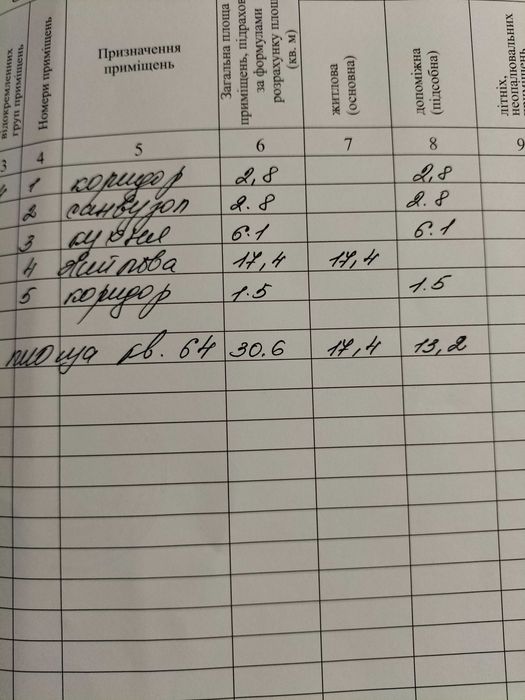 відокремленних
груп приміщень
Номери приміщень
Призначення
приміщень
Загальна площа
приміщень, підрахов
за формулами
розрахунку площ
(кв. м)
житлова
(основна)
допоміжна
(підсобна)
літніх,
неопалювальних
3 4 5 6 7 8 9
1 коридор 2,8 2,8
2 санвузол 2.8 2.8
3 кухня 6.1 6.1
4 житлова 17,4 17,4
5 коридор 1.5 1.5
площа кв. 64 30.6 17,4 13,2